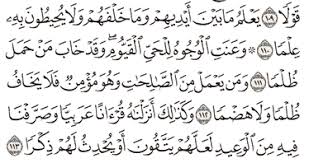 قَوْلًا ١٠٩ يَعْلَمُ مَا بَيْنَ أَيْدِيهِمْ وَمَا خَلْفَهُمْ وَلَا يُحِيطُونَ بِهِۦ
عِلْمًا ١١٠ ۞ وَعَنَتِ ٱلْوُجُوهُ لِلْحَىِّ ٱلْقَيُّومِ ۖ وَقَدْ خَابَ مَنْ حَمَلَ
ظُلْمًا ١١١ وَمَن يَعْمَلْ مِنَ ٱلصَّٰلِحَٰتِ وَهُوَ مُؤْمِنٌ فَلَا يَخَافُ
ظُلْمًا وَلَا هَضْمًا ١١٢ وَكَذَٰلِكَ أَنزَلْنَٰهُ قُرْءَانًا عَرَبِيًّا وَصَرَّفْنَا
فِيهِ مِنَ ٱلْوَعِيدِ لَعَلَّهُمْ يَتَّقُونَ أَوْ يُحْدِثُ لَهُمْ ذِكْرًا ١١٣